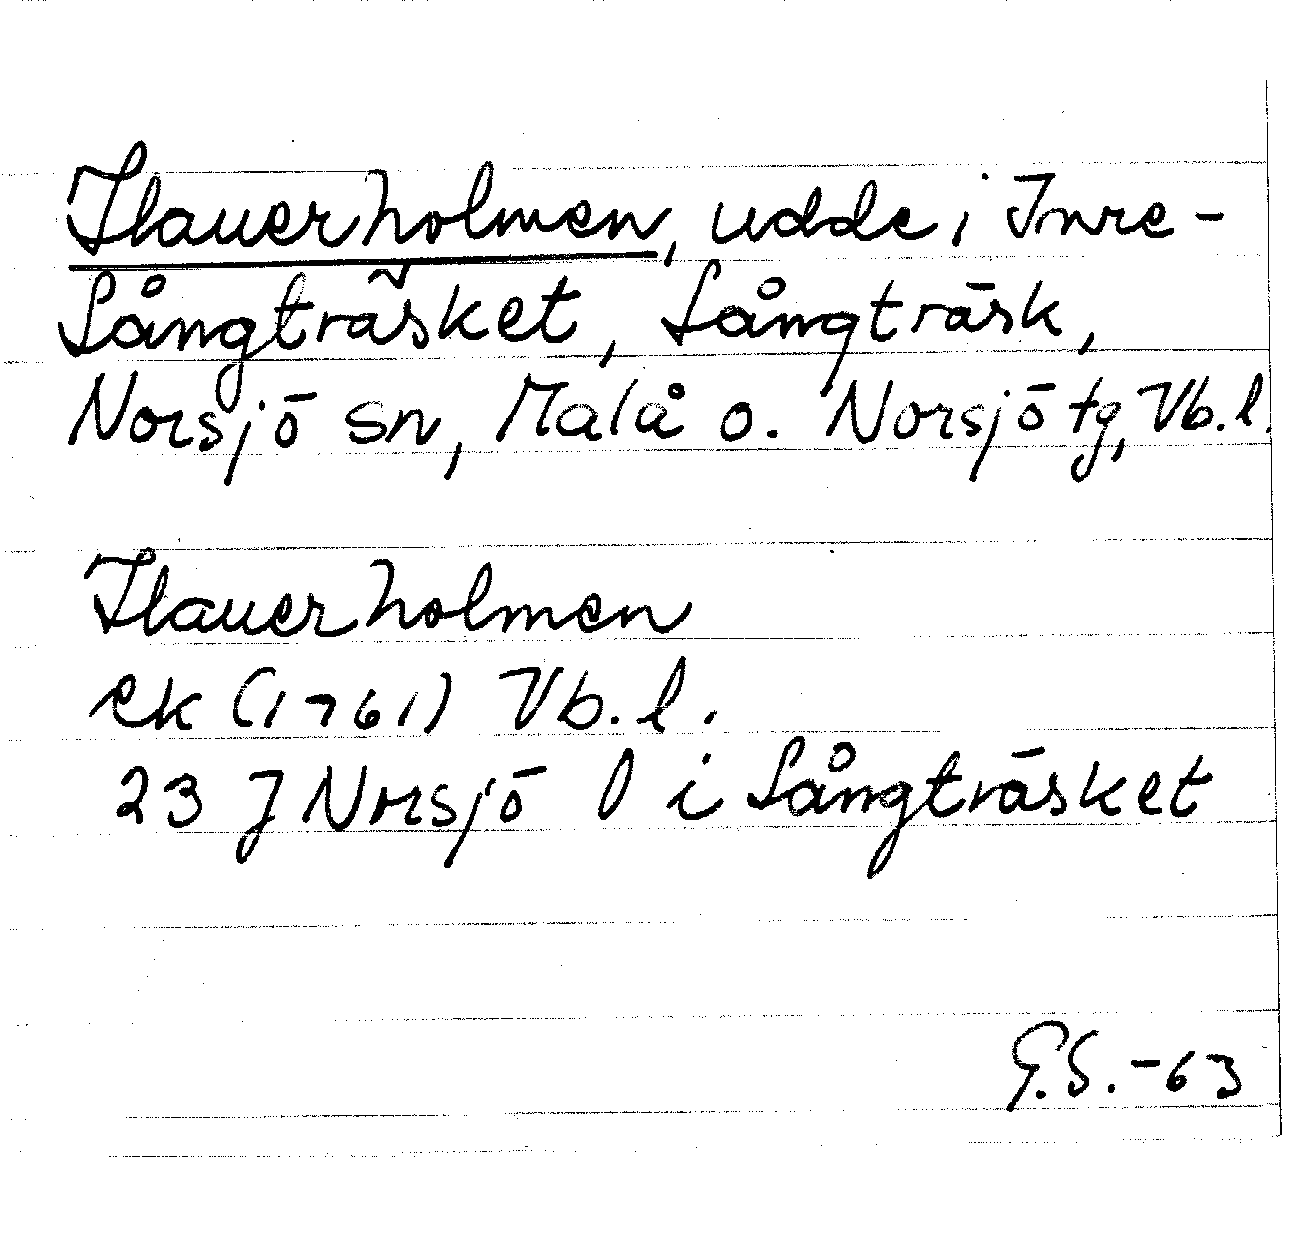 Ilauerholmen, udde i Inre-
Långträsket, Långträsk,
Norsjö sn, Malå o. Norsjö tg, Vb.l.
Ilauerholmen
ek (1761) Vb.l.
23 J Norsjö l i Långträsket
G.S. -63